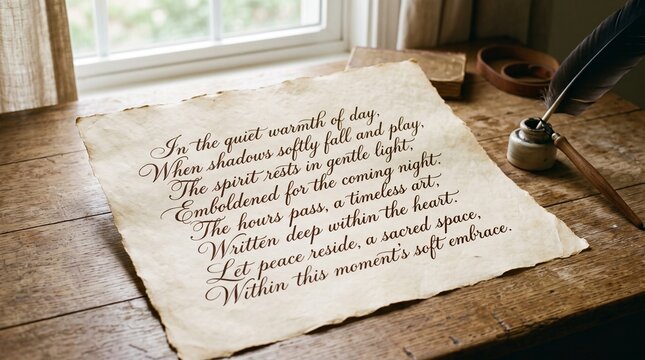 In the quiet warmth of day,
When shadows softly fall and play,
The spirit rests in gentle light,
Emboldened for the coming night.
The hours pass, a timeless art,
Written deep within the heart.
Let peace reside, a sacred space,
Within this moment's soft embrace.